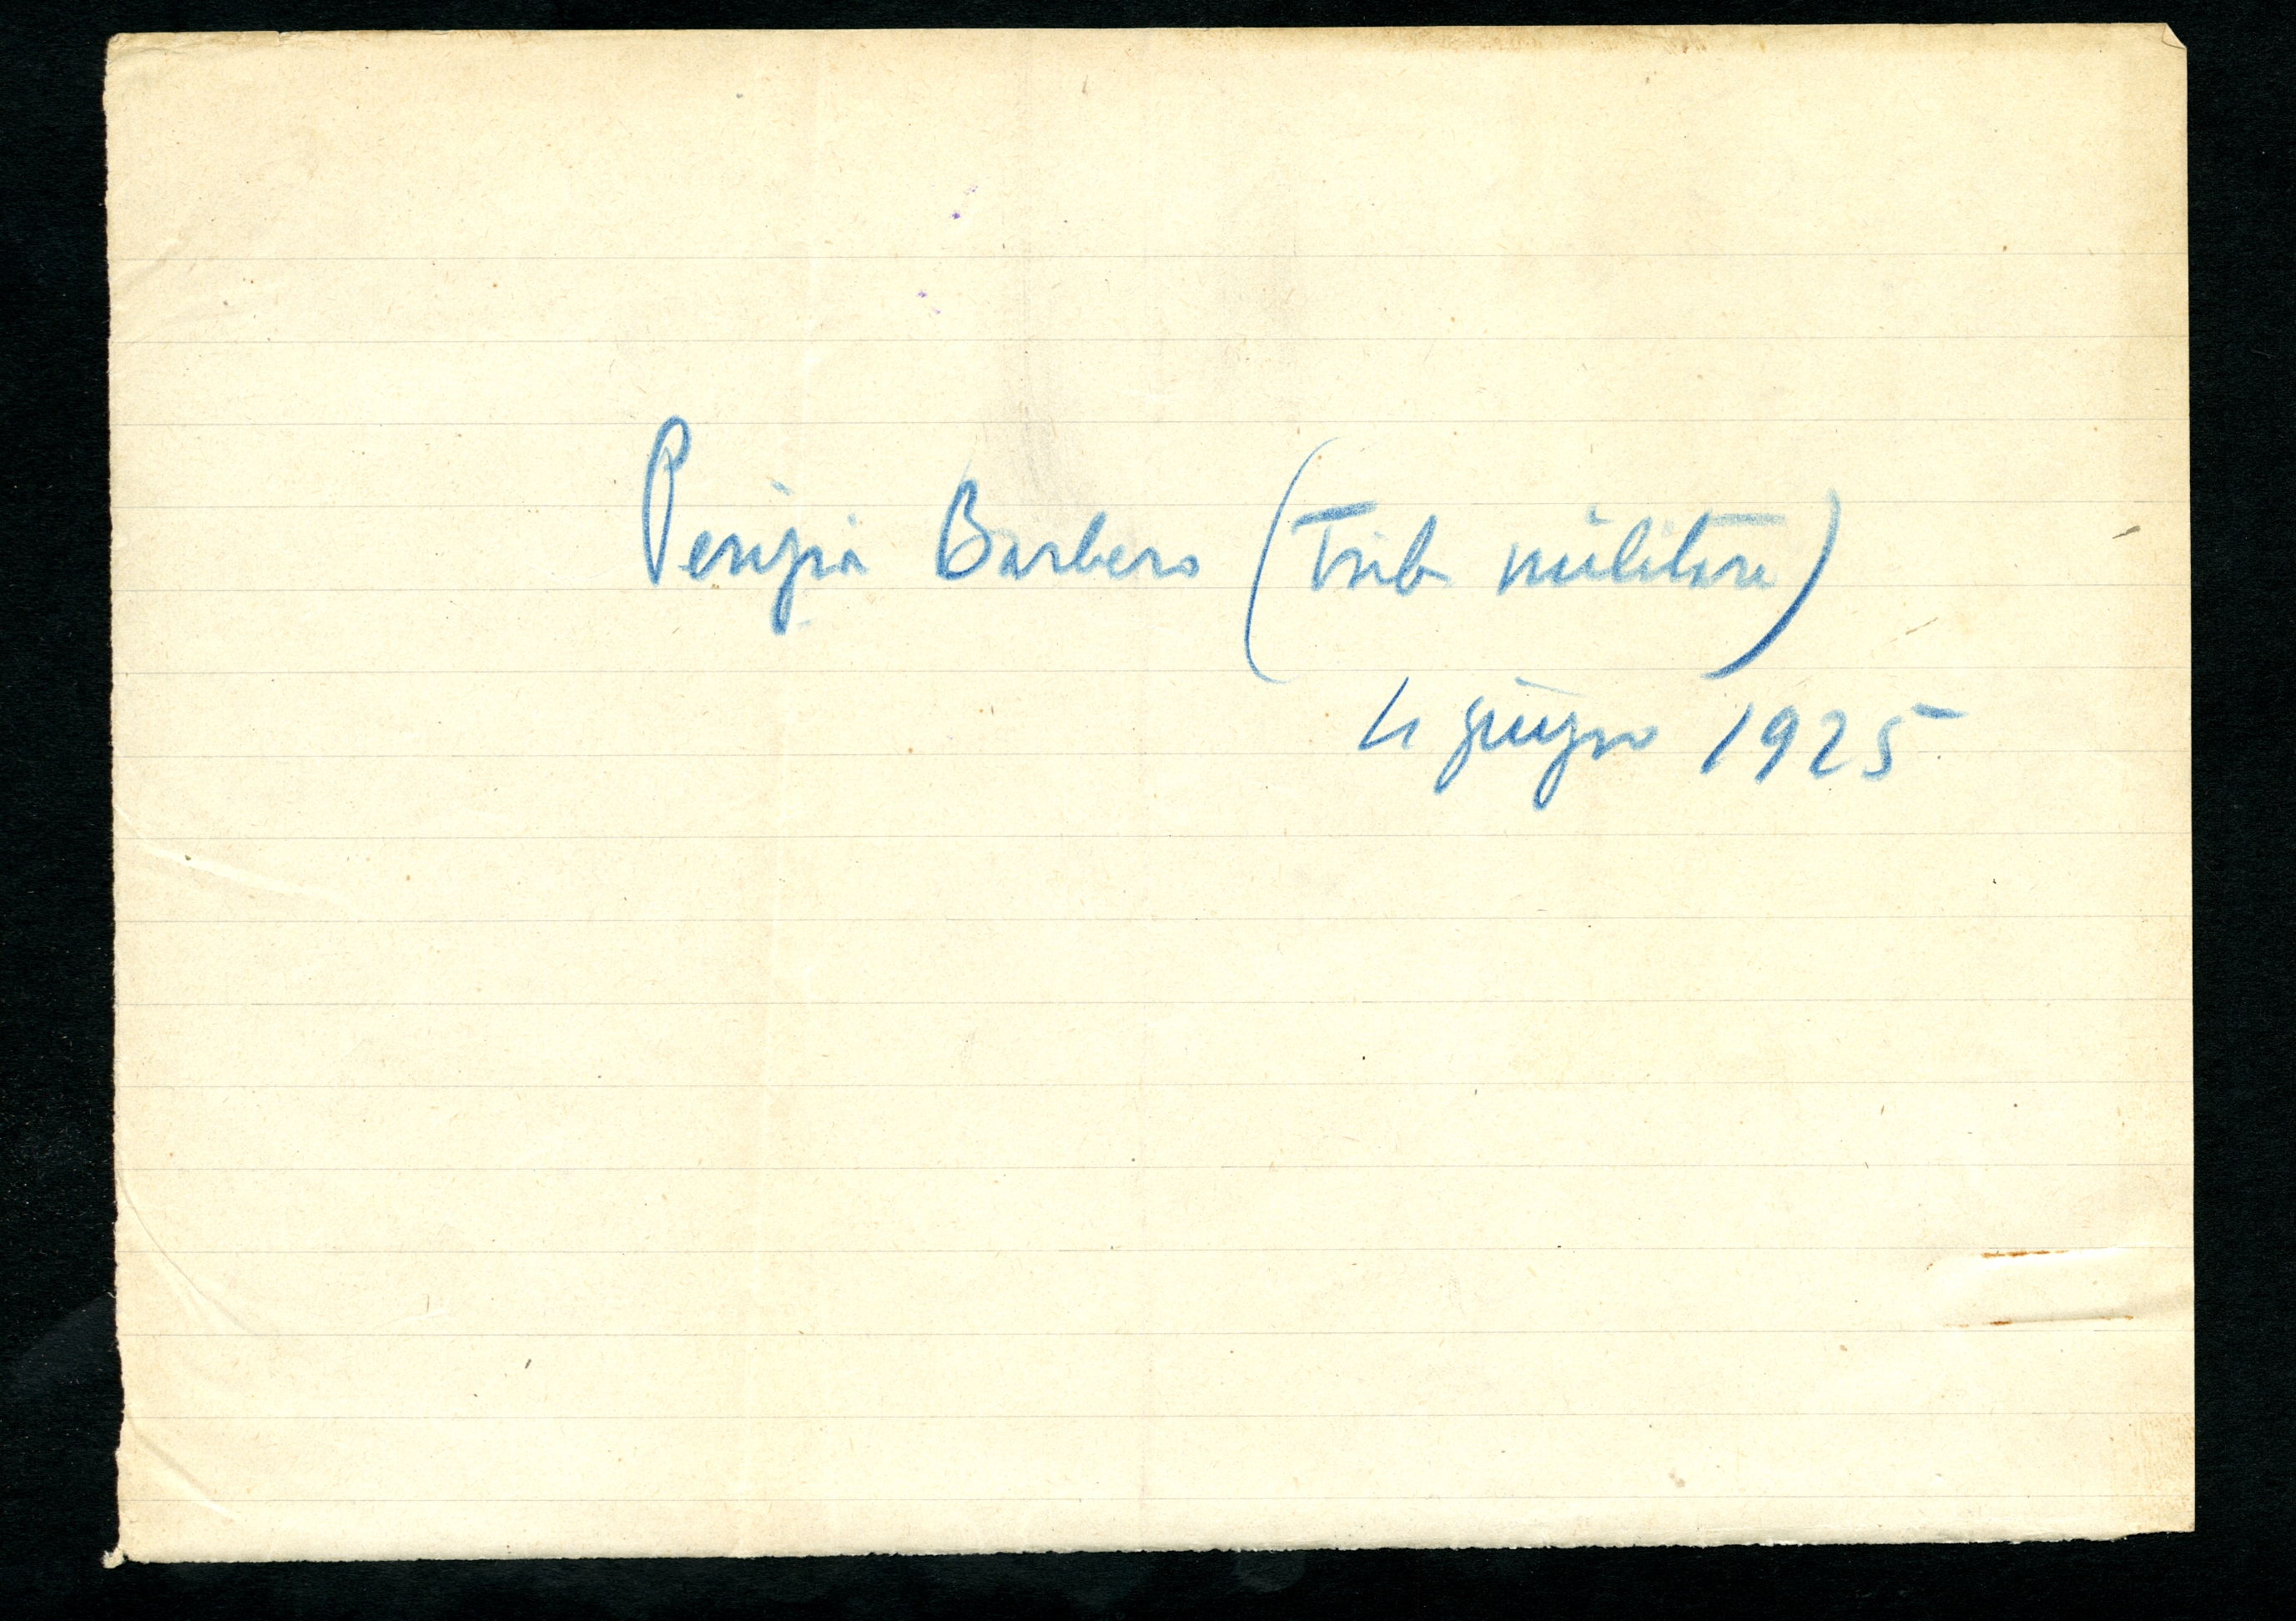 Perizia Barbero (Trib militare)
4 giugno 1925